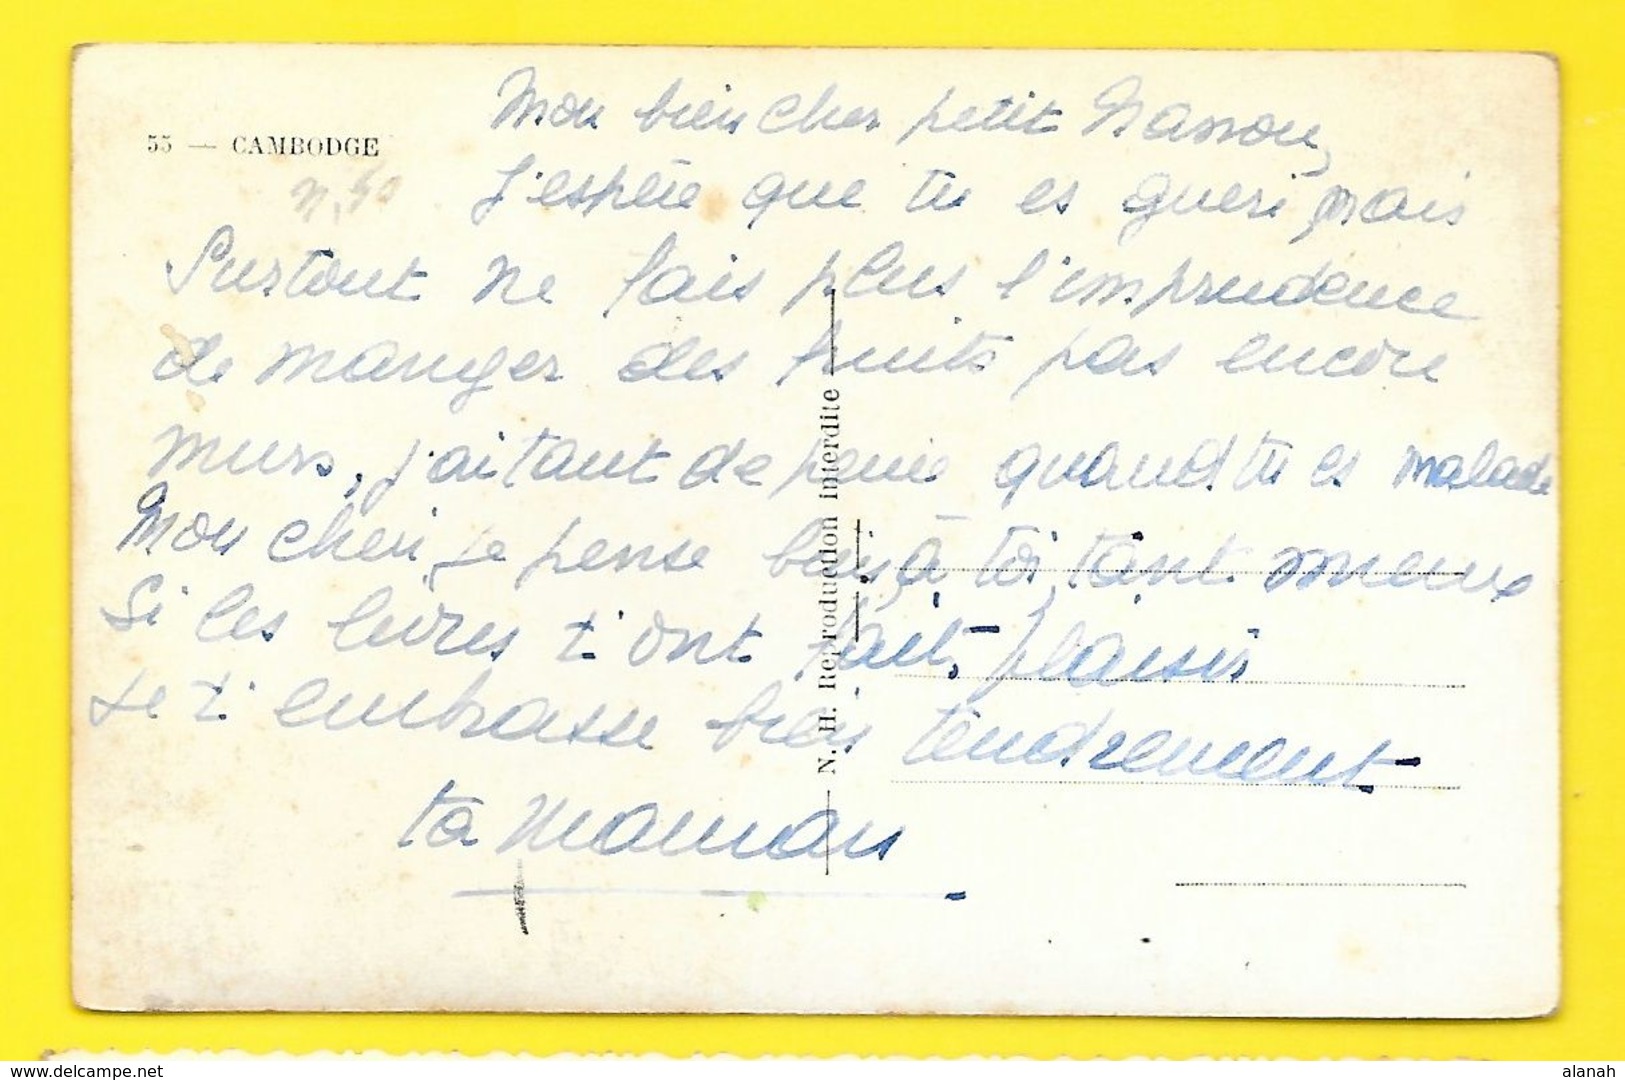 55 — CAMBODGE
n, 50
Mon bien cher petit
J'espère que tu es gueri, mais
Surtout ne fais plus l'imprudence
de manger des fruits pas encore
murs, j'ai tant de peine quand tu es malade
Mon cheri, je pense bien à toi, tant mieux
Si les livres t'ont fait plaisir
Je t'embrasse bien tendrement
ta maman
N. H. Reproduction interdite
delcampe.net
alanah